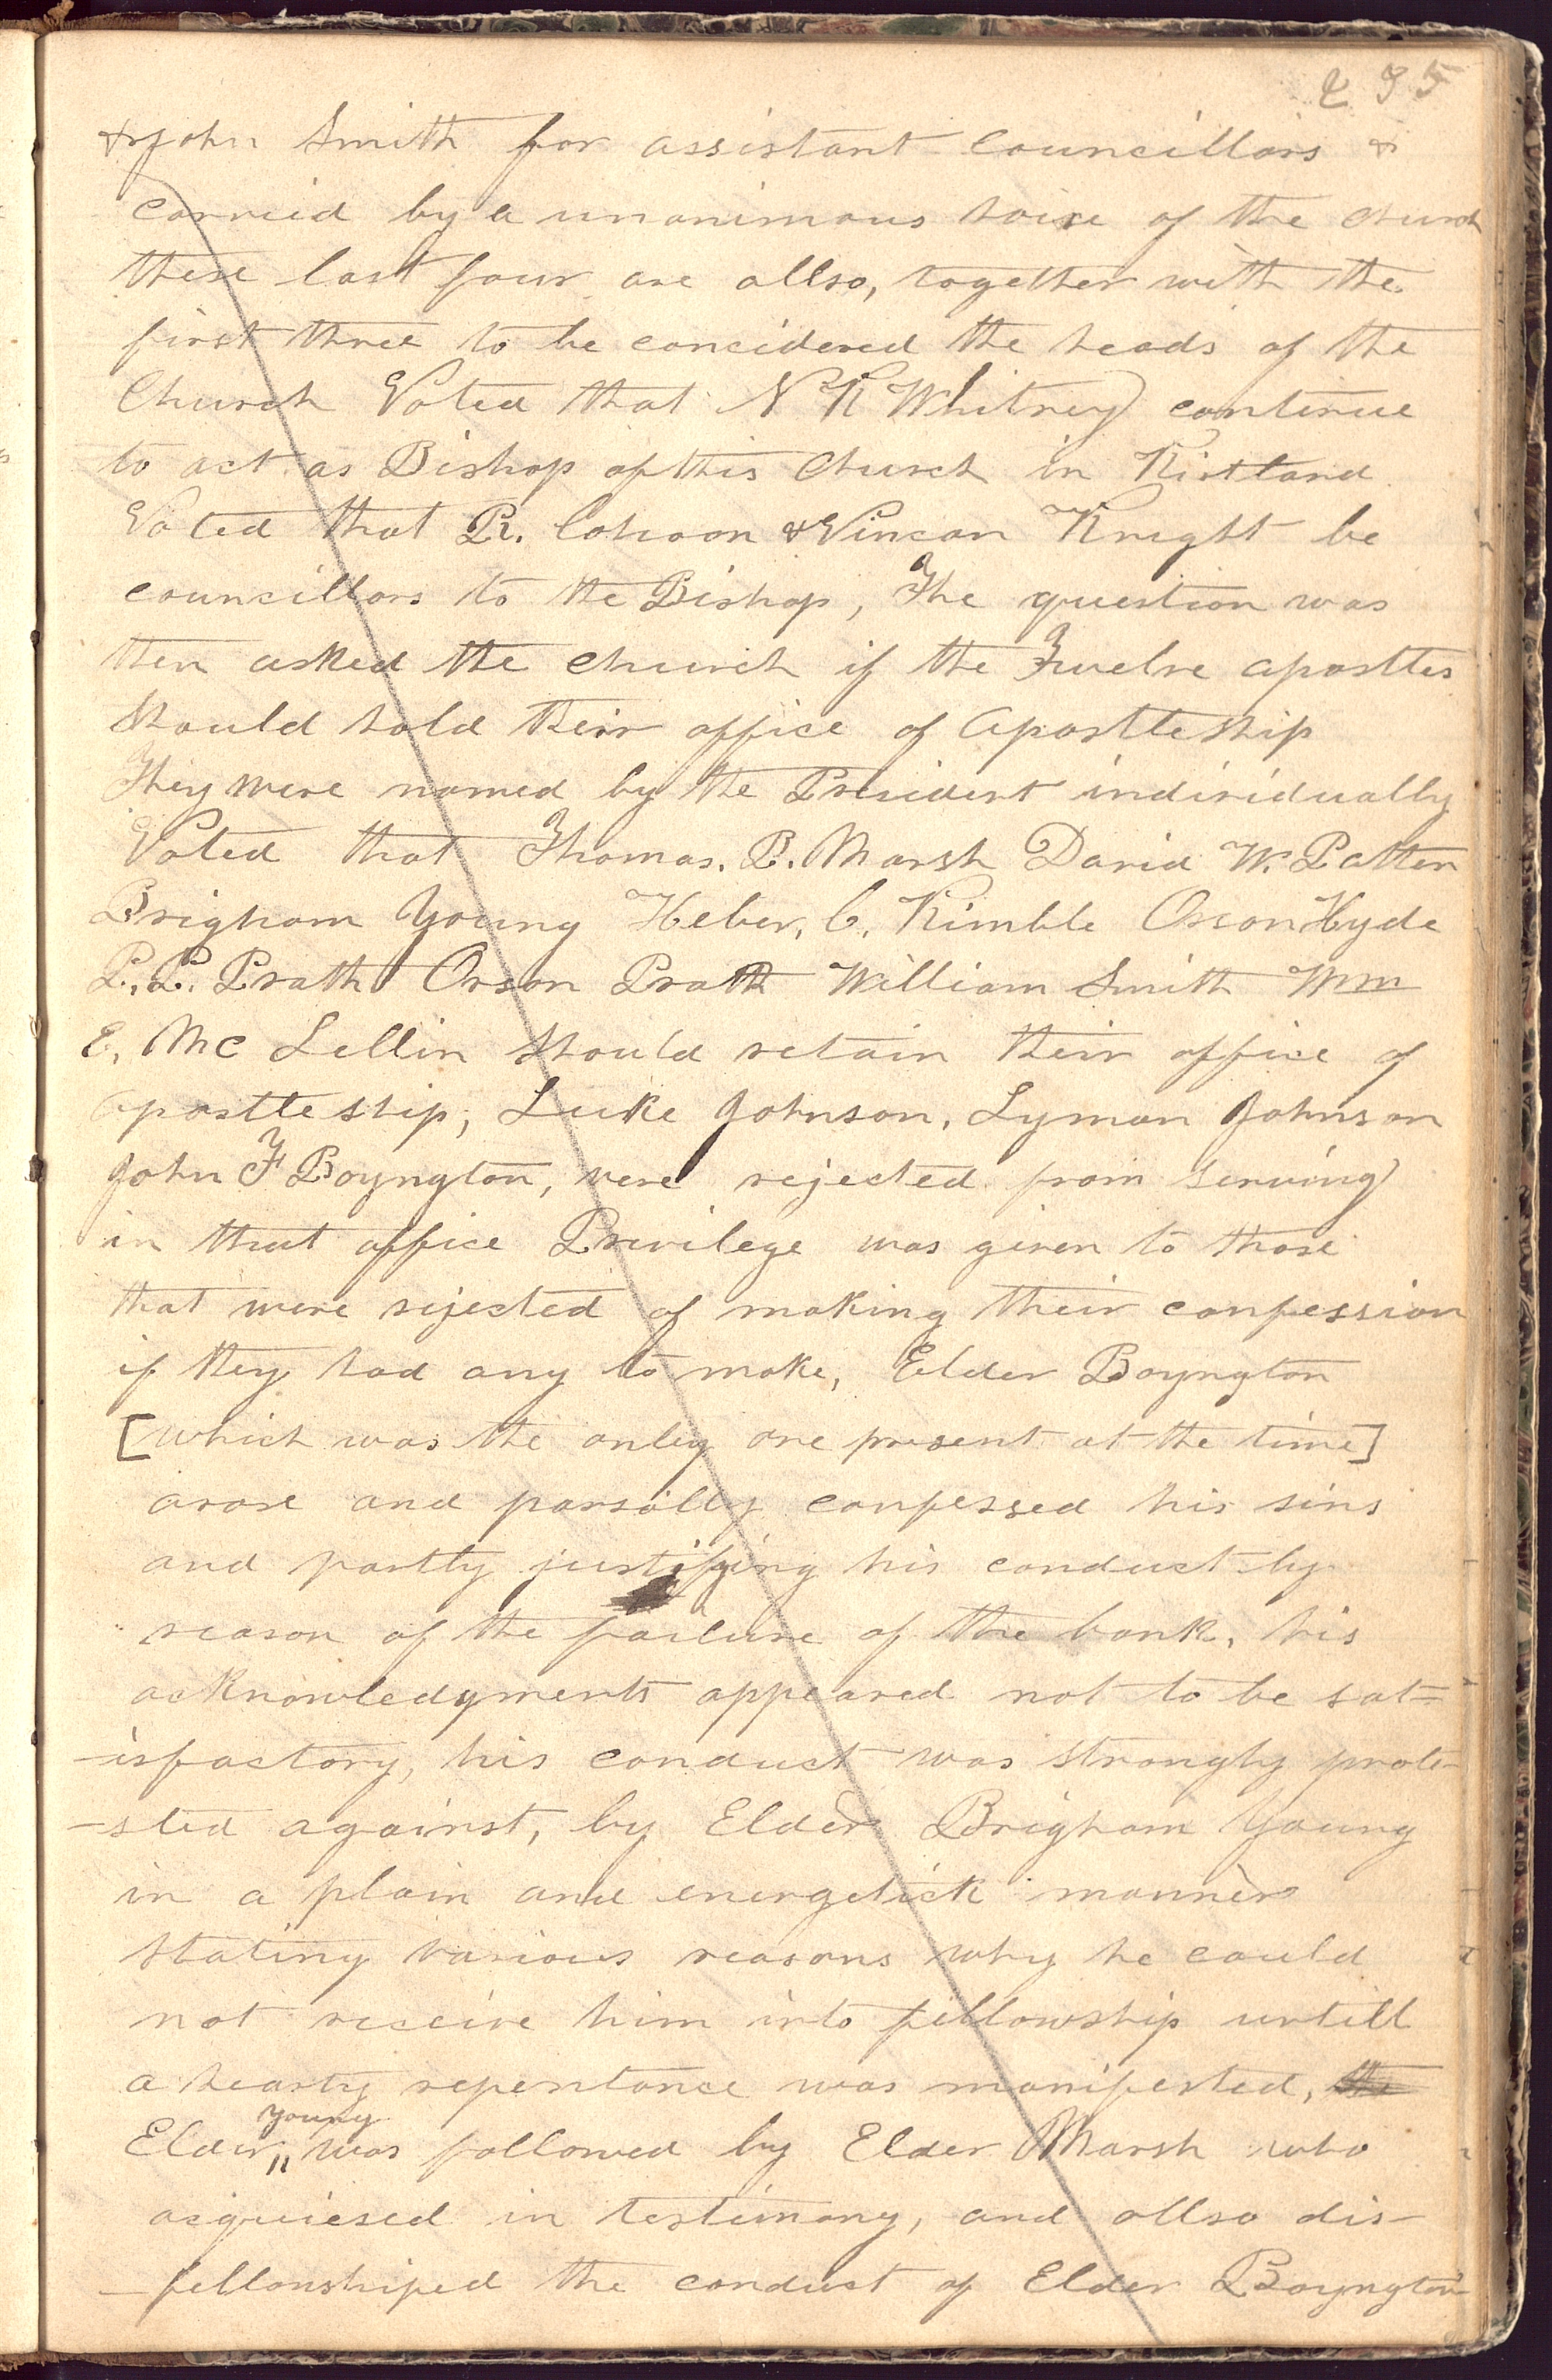 235
& John Smith for assistant Councillors &
carried by a unanimous voice of the church
these last four are allso, together with the
first three to be concidered the heads of the
Church Voted that N K Whitney continue
to act as Bishop of this Church in Kirtland
Voted that R. Cohoon & Vincan Knight be
councillors to the Bishop, The question was
then asked the church if the Twelve apostles
should hold their office of apostleship
They were named by the President individually
Voted that Thomas. B. Marsh David W. Patten
Brigham Young Heber, C, Kimble Orson Hyde
P, P, Pratt Orson Pratt William Smith Wm
E, Mc Lellin should retain their office of
apostleship, Luke Johnson, Lyman Johnson
John F Boyngton, were rejected from serving
in that office Privilege was given to those
that were rejected of making their confession
if they had any to make, Elder Boyngton
[which was the only one present at the time]
arose and parsally confessed his sins
and partly justifying his conduct by
reason of the failure of the bank, his
acknowledgments appeared not to be sat=
-isfactory, his conduct was strongly prote-
-sted against, by Elder Brigham Young
in a plain and energetick manner
stating various reasons why he could
not receive him into fellowship untill
a hearty repentance was manifested, the
young
Elder was followed by Elder Marsh who
acquiesed in testimony, and allso dis-
-fellowshiped the conduct of Elder Boyngton